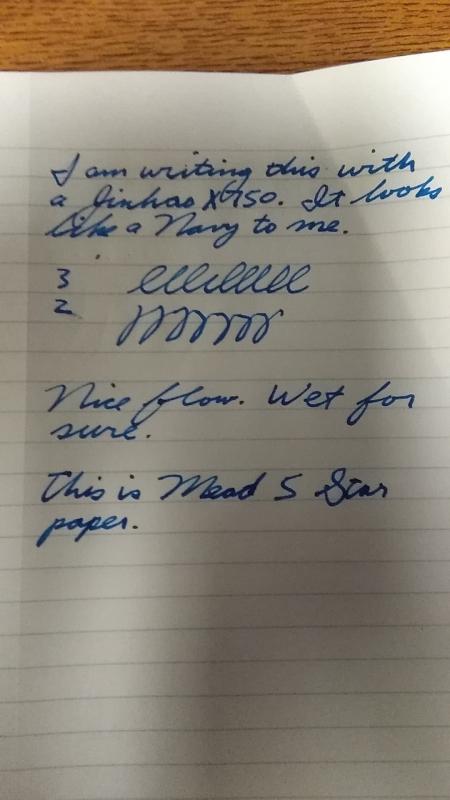 I am writing this with
a Jinhao X750. It looks
like a Navy to me.
3
2
Nice flow. Wet for
sure.
This is Mead 5 Star
paper.